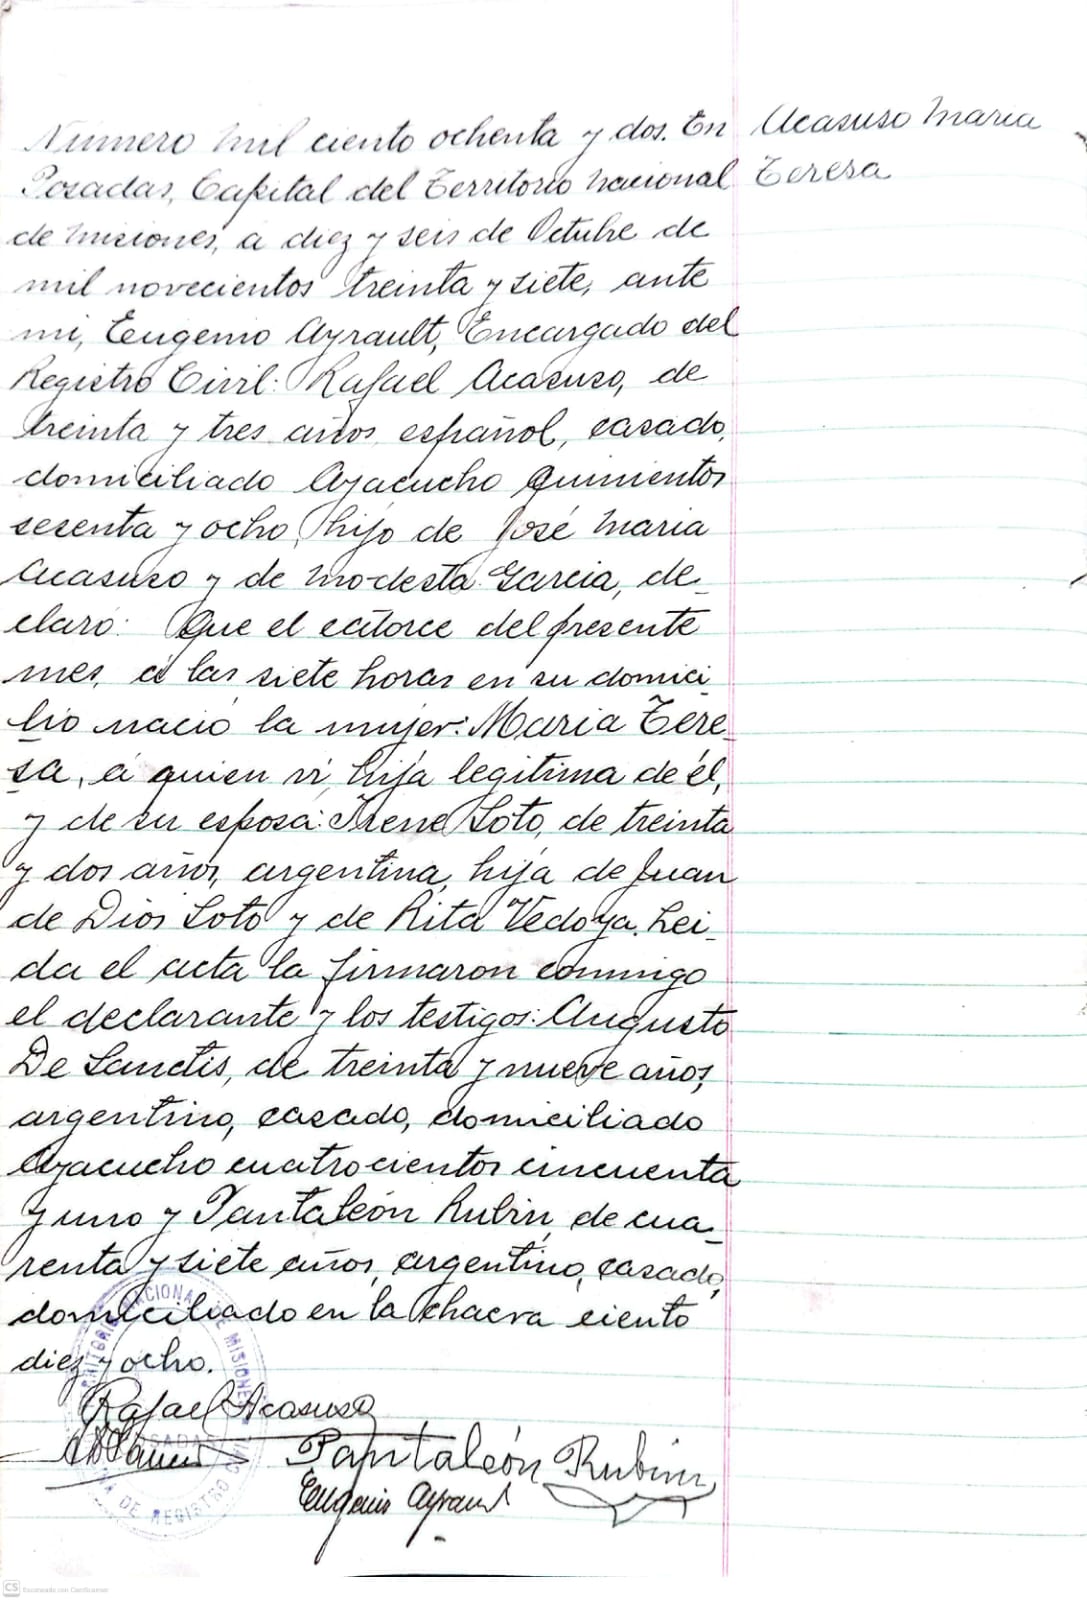 Número mil ciento ochenta y dos. En
Posadas, Capital del Territorio Nacional
de Misiones, a diez y seis de Octubre de
mil novecientos treinta y siete, ante
mi, Eugenio Ayrault, Encargado del
Registro Civil: Rafael Acasuso, de
treinta y tres años, español, casado,
domiciliado Ayacucho quinientos
sesenta y ocho, hijo de José Maria
Acasuso y de Modesta Garcia, de_
claró: Que el catorce del presente
mes, á las siete horas en su domici_
lio nació la mujer: Maria Tere_
sa, á quien ví, hija legitima de él,
y de su esposa: Irene Soto, de treinta
y dos años, argentina, hija de Juan
de Dios Soto y de Rita Vedoya. Lei_
da el acta la firmaron conmigo
el declarante y los testigos: Augusto
De Sanctis, de treinta y nueve años,
argentino, casado, domiciliado
Ayacucho cuatrocientos cincuenta
y uno y Pantaleón Rubin, de cua_
renta y siete años, argentino, casado,
domiciliado en la chacra ciento
diez y ocho.
Acasuso Maria
Teresa
Rafael Acasuso
Pantaleón Rubin
Eugenio Ayrault
NACIONAL DE MISIONES
POSADAS
DE REGISTRO
CS Escaneado con CamScanner